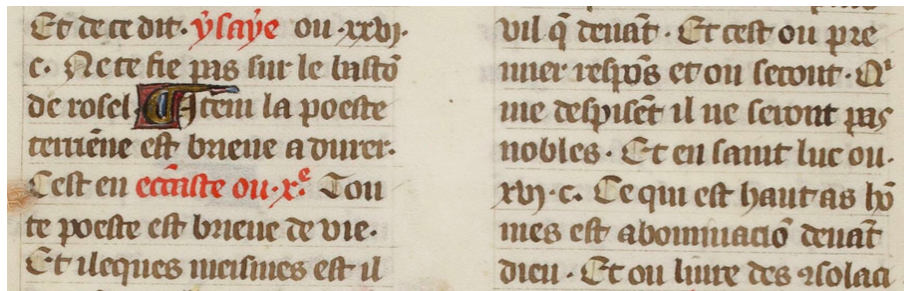 Et de ce dit· ẏsaẏe ou ·xxvj·
c· Ne te fie pas sur le bastō
de rosel Item la poeste
terriēne est brieue a durer·
Cest en eccãste ou·x.ͤ Tou
te poeste est brieue de vie·
Et ileques meismes est il
vil q̄ deuāt · Et cest ou pre
mier respōs et ou secont · Qͥ
me despisēt il ne seront pas
nobles · Et en saint luc ou·
xvj·c· Ce qui est haut as hō
mes est abominaciō deuāt
dieu · Et ou liure des ꝯsolaci